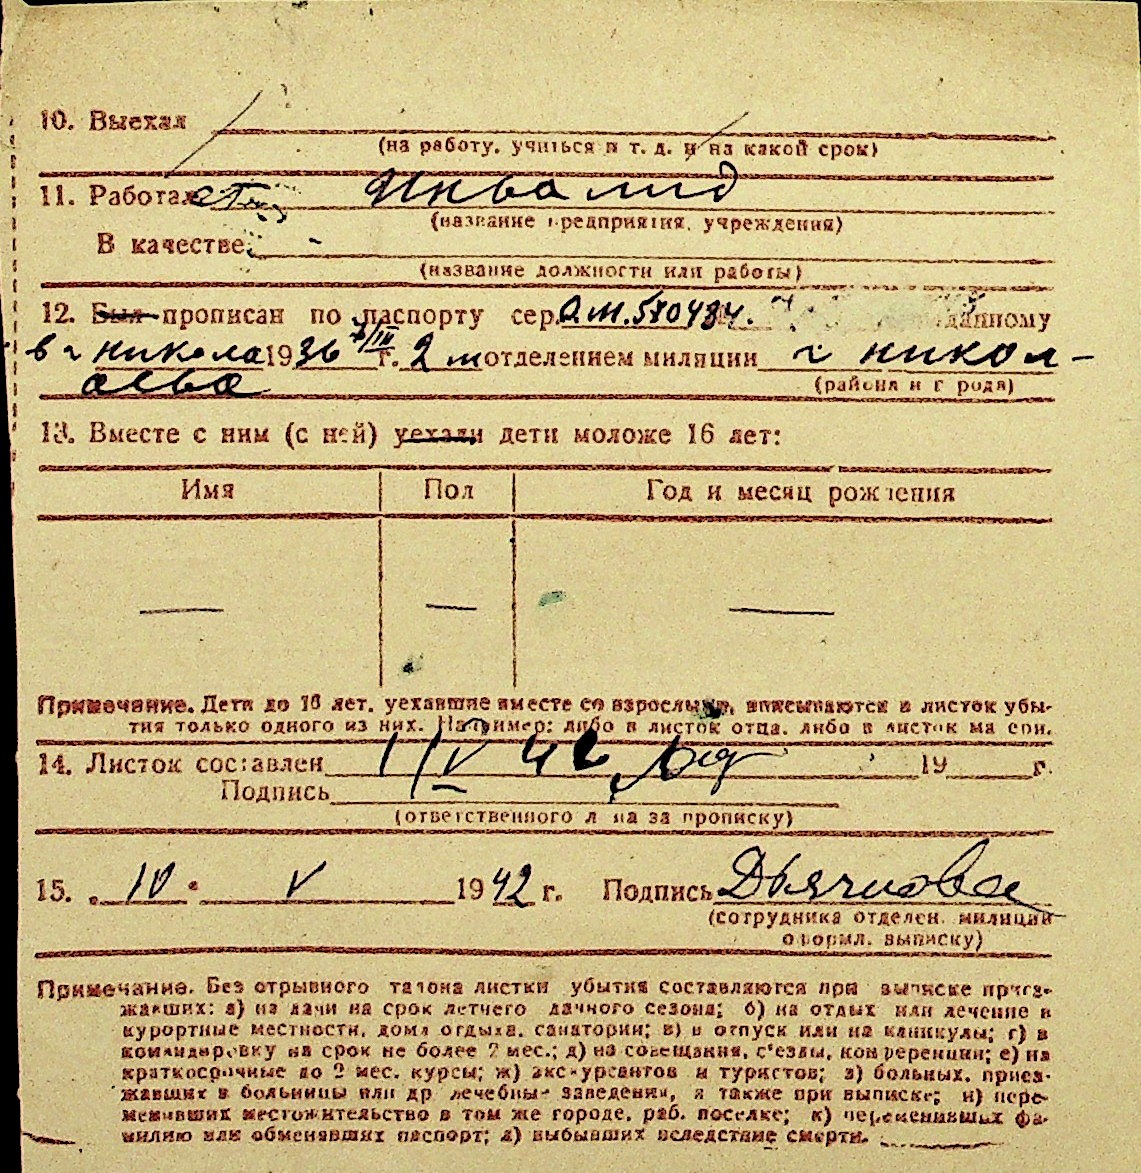 10. Выехал
(на работу, учиться и т. д. и на какой срок)
11. Работал Инвалид
(название предприятия, учреждения)
В качестве -
(название должности или работы)
12. Был прописан по паспорту сер. О.М. 580484. данному
в г Никола 1936 г. 2 м отделением милиции г Никол-
аева
(района и города)
13. Вместе с ним (с ней) уехали дети моложе 16 лет:
Имя Пол Год и месяц рождения
— — —
Примечание. Дети до 16 лет, уехавшие вместе со взрослыми, вписываются в листок убы-
тия только одного из них. Например: либо в листок отца, либо в листок матери.
14. Листок составлен 1/V 42 19 г.
Подпись
(ответственного лица за прописку)
15. 10 V 1942 г. Подпись Дьячкова
(сотрудника отделен. милиции
оформл. выписку)
Примечание. Без отрывного талона листки убытия составляются при выписке приез-
жавших: а) на дачи на срок летнего дачного сезона; б) на отдых или лечение в
курортные местности, дома отдыха, санатории; в) в отпуск или на каникулы; г) в
командировку на срок не более 2 мес.; д) на совещания, с'езды, конференции; е) на
краткосрочные до 2 мес. курсы; ж) экскурсантов и туристов; з) больных, приез-
жавших в больницы или др лечебные заведения, а также при выписке; и) пере-
менивших местожительство в том же городе, раб. поселке; к) переменивших фа-
милию или обменявших паспорт; л) выбывших вследствие смерти.